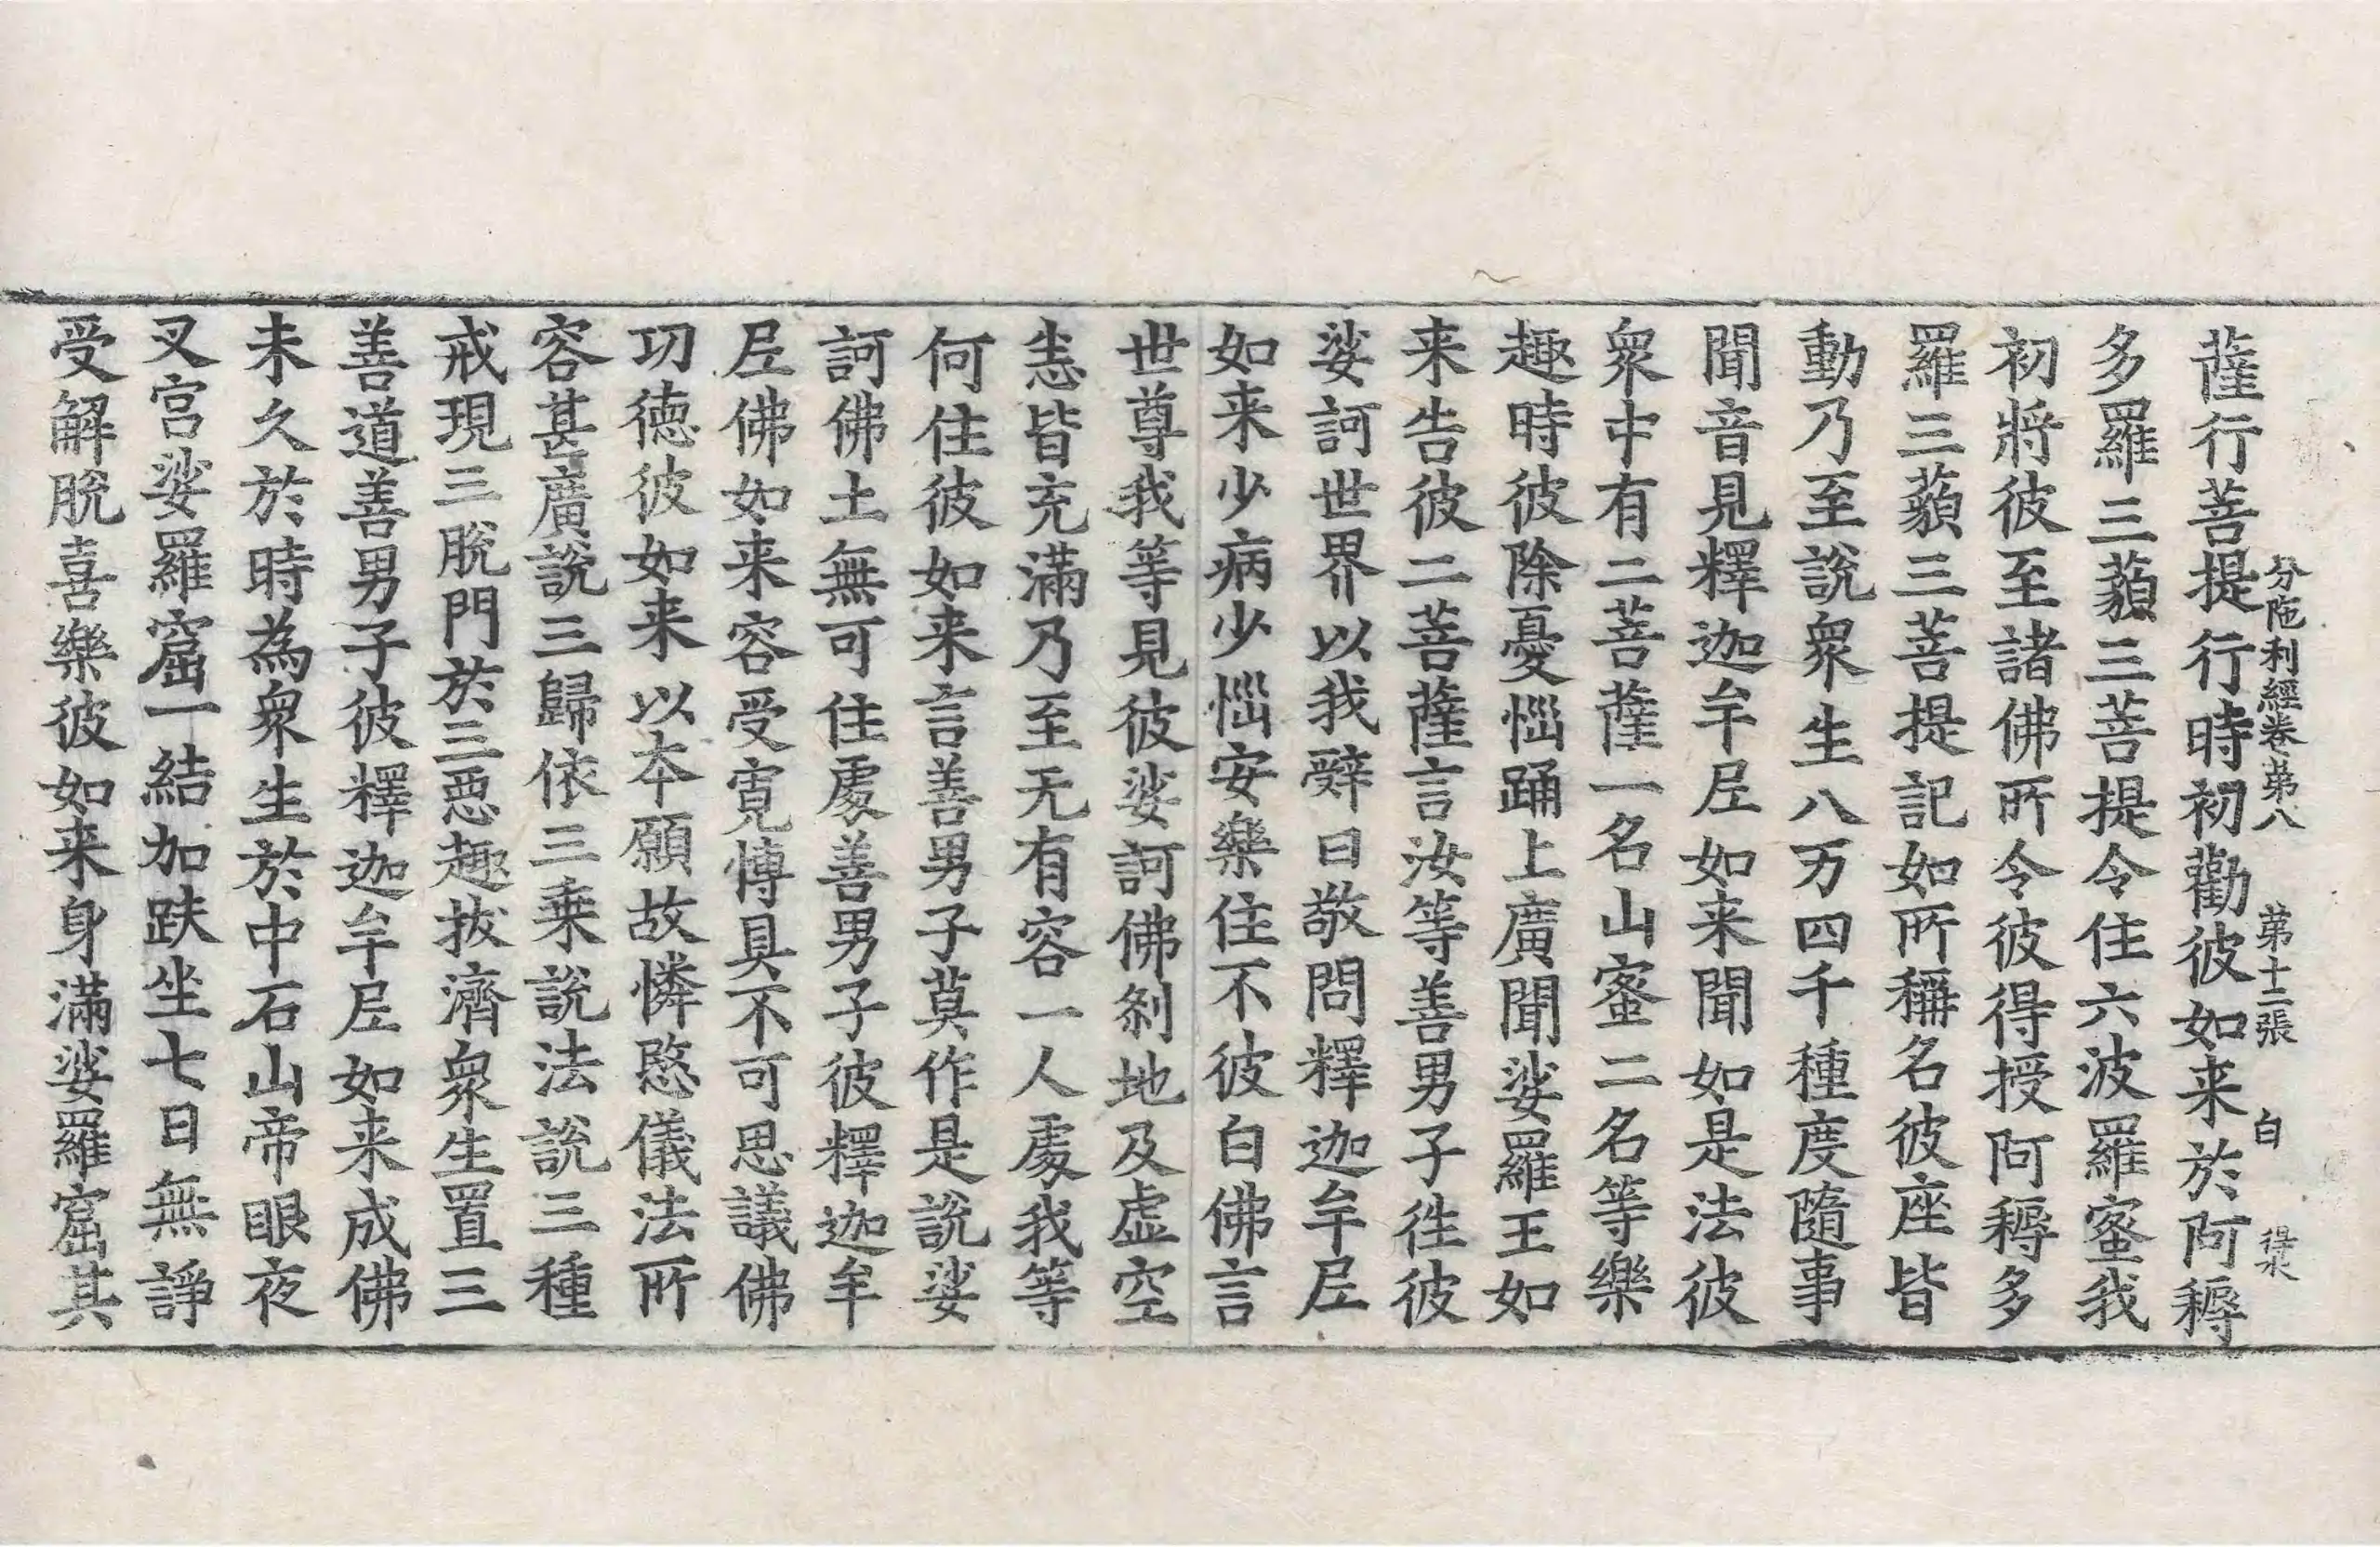 分陁利經卷第八 第十二張 白
薩行菩提行時初勸彼如来於阿耨
多羅三藐三菩提令住六波羅蜜我
初將彼至諸佛所令彼得授阿耨多
羅三藐三菩提記如所稱名彼座皆
動乃至說衆生八万四千種度隨事
聞音見釋迦牟尼如来聞如是法彼
衆中有二菩薩一名山蜜二名等樂
趣時彼除憂惱踊上廣聞娑羅王如
来告彼二菩薩言汝等善男子徃彼
娑訶世界以我辞曰敬問釋迦牟尼
如来少病少惱安樂住不彼白佛言
世尊我等見彼娑訶佛剎地及虛空
恚皆充滿乃至无有容一人處我等
何住彼如来言善男子莫作是說娑
訶佛土無可住處善男子彼釋迦牟
尼佛如来容受寬博具不可思議佛
功德彼如来以本願故憐愍儀法所
容甚廣說三歸依三乗說法說三種
戒現三脫門於三惡趣拔濟衆生置三
善道善男子彼釋迦牟尼如来成佛
未久於時為衆生於中石山帝眼夜
叉宫娑羅窟一結加趺坐七日無諍
受解脫喜樂彼如来身滿娑羅窟其